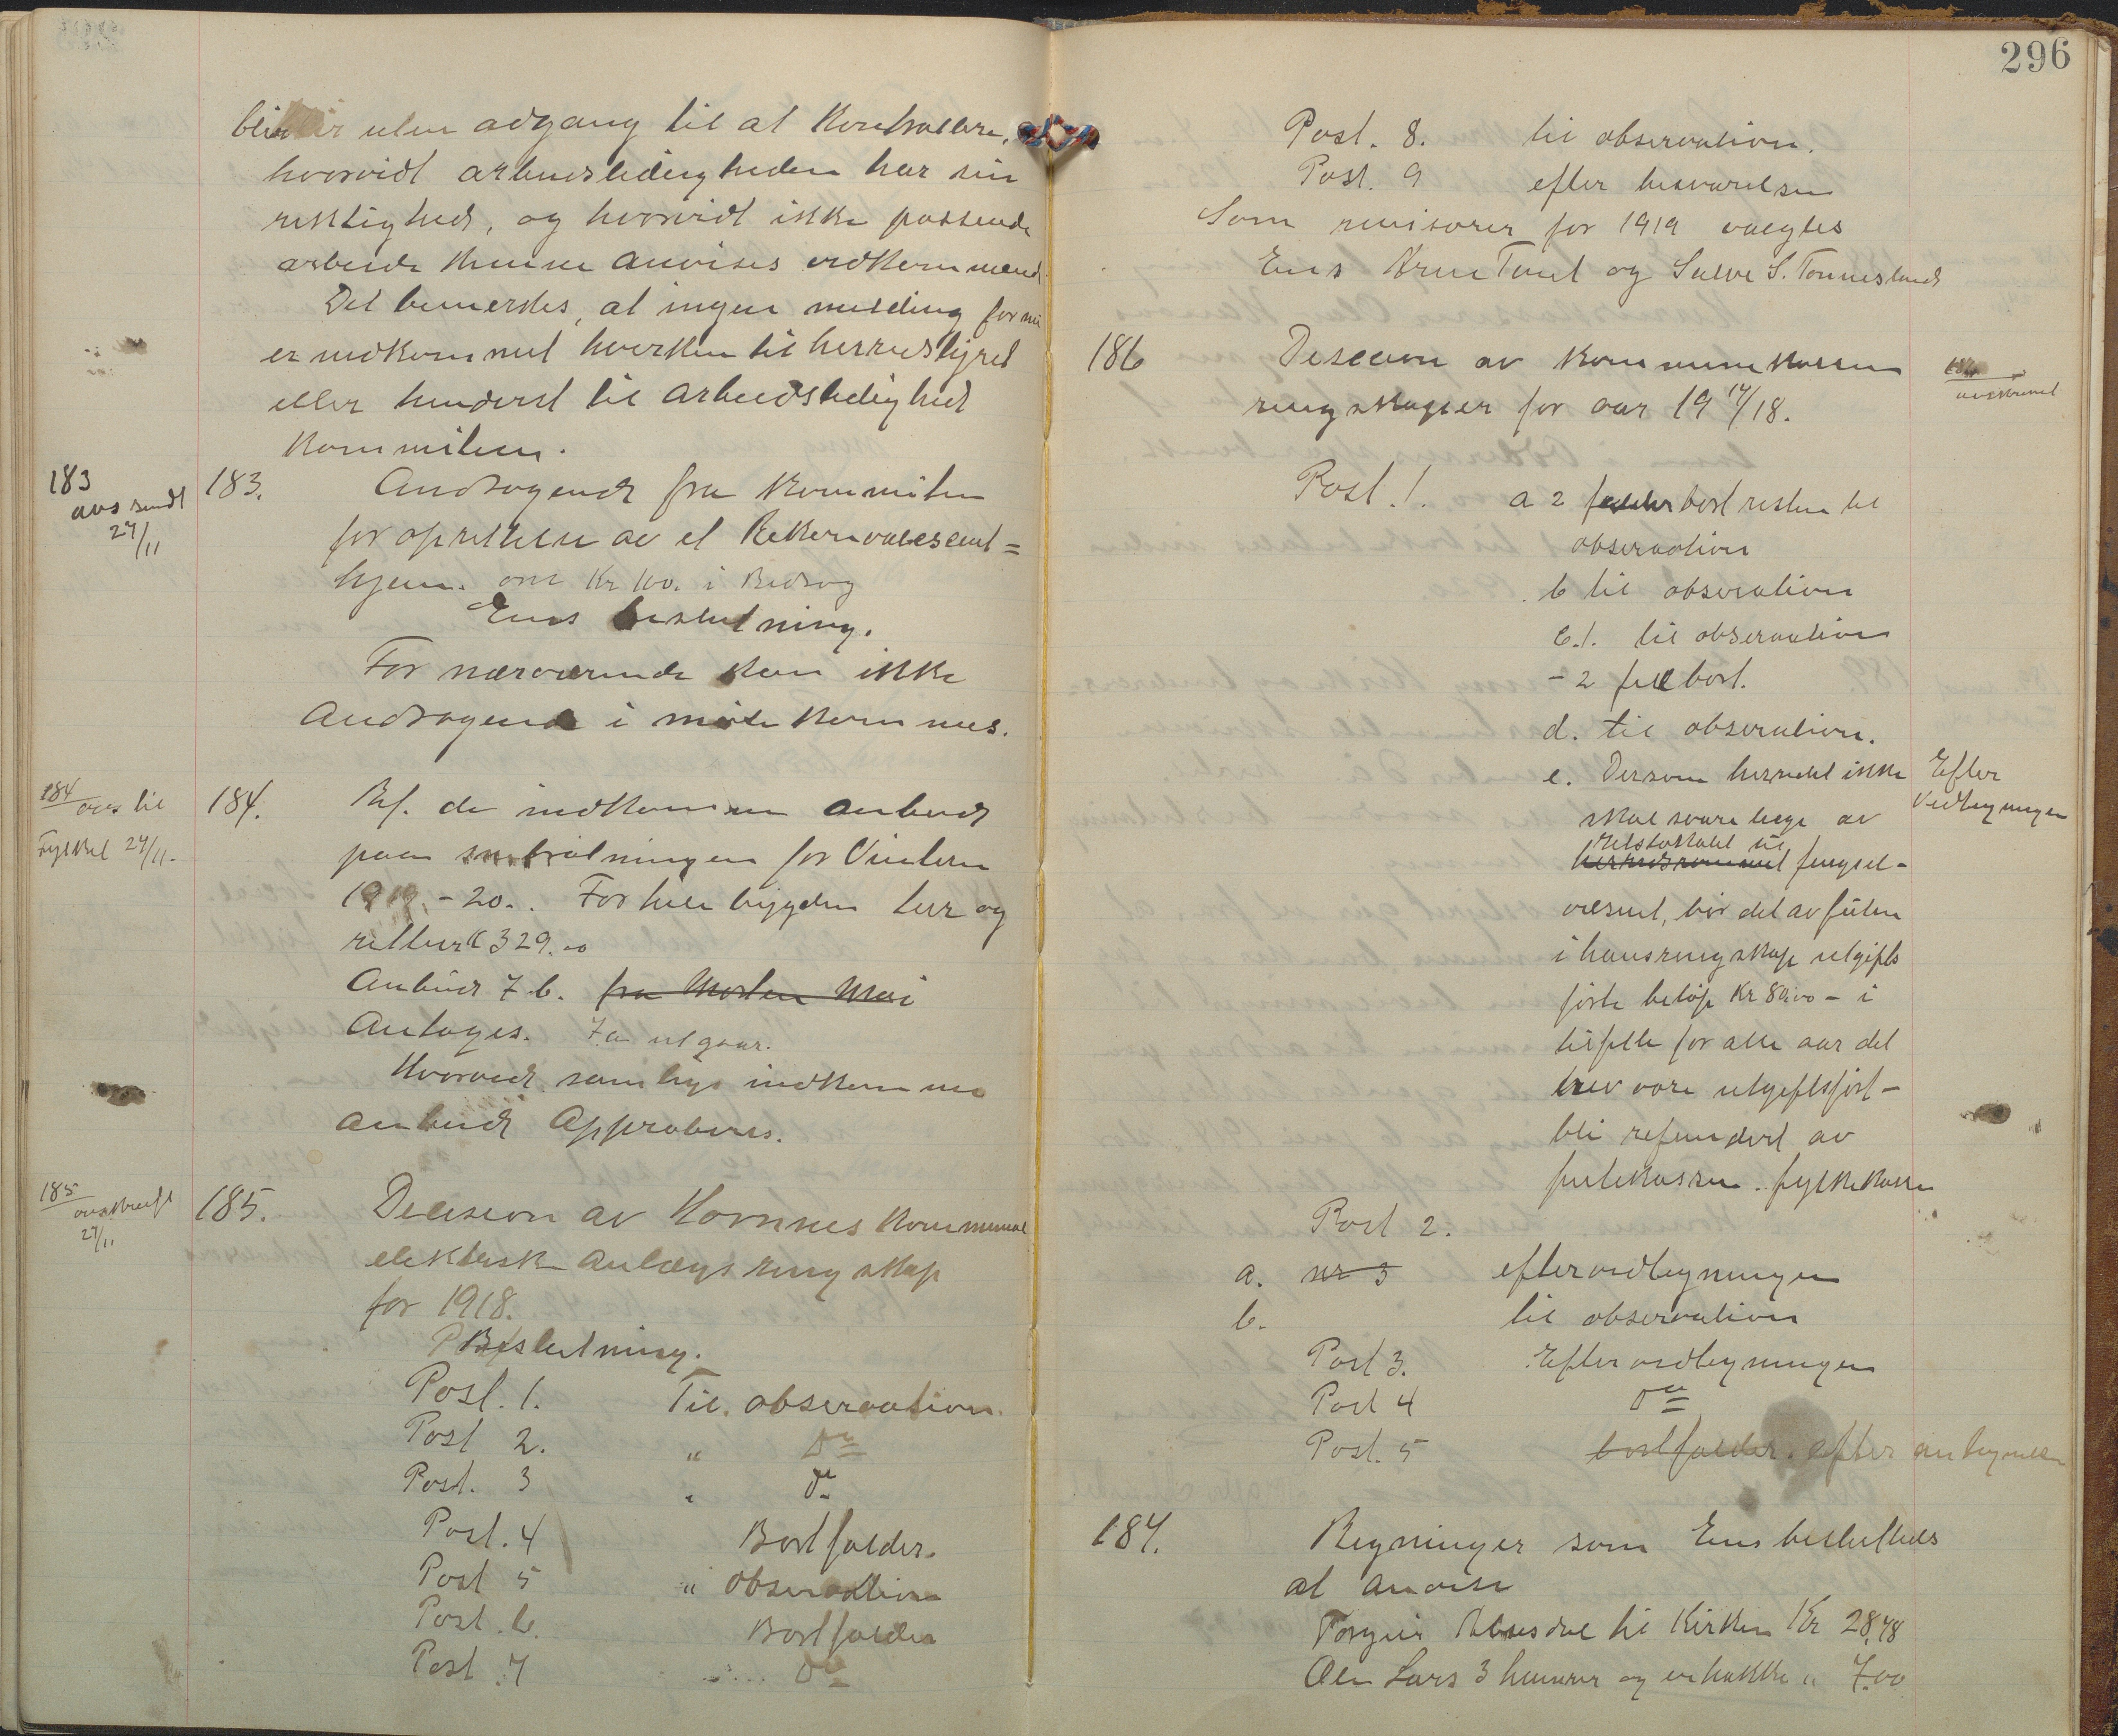 blir uten adgang til at Kontrollere,
hvorvidt arbeidsledigheden har sin
riktighed, og hvorvidt ikke passende
arbeide kunne anvises vedkommend
Det bemerkes, at ingen melding
er indkommet hverken til herredstyret
eller henderst til arbeidsledighed
Kommiteen.
183
avsendt
27/11
183. Andragende fra Kommiteen
for oprettelse av et Rekonvalescent=
hjem. om Kr 100. i Bidrag
Ens beslutning.
For nærværende kan ikke
Andragende i møtekommes.
184
avs til
Fylket 27/11.
184. Ref. de indkomne anbud
paa snebrøitningen for Vinteren
1919 - 20. For hele bygden
329.00
Anbud 7 b. fra Morten Moi
Antages. 7a utgaar.
Hvorved samtlige indkomne
anbud Approberes.
185
avskreft
27/11
185. Decision av Hornnes Kommunale
elektrisk anlægs regnskap
for 1918.
Beslutning.
Post. 1. Til observation.
Post 2. " Do
Post. 3 " Do
Post. 4 Bortfalder.
Post 5 " Observation
Post. 6. Bortfalder
Post. 7 Do
296
Post. 8. til observation.
Post. 9 efter besvarelsen
Som revisorer for 1919 valgtes
Ens Arne Tveit og Salve S. Tønnesland
186 Decision av Kommunekassen
regnskaper for aar 19 17/18.
186
avskrevet
Post. 1. a 2 falder bort resten til
observation
b til observation
c.1. til observation
- 2 fall bort.
d. til observation.
e. Dersom herredet ikke
Efter
Vedtegningen
skal svare læge av
herredsrommet fengsel-
væsenet, bør det av
i hans regnskap utgifts
førte beløp Kr 80.00 - i
tilfelle for alle aar det
blev vore utgiftsført -
bli refundert av
fylkekassen
Post 2.
a. nr 3 efter vedtegningen
b. til observation
Post 3. Efter vedtegningen
Post 4 Do
Post. 5 bortfalder. efter antegnelsen
187. Regninger som Ens besluttedes
at anvise
til Kirken Kr 28,78
Olen Lars 3 hammer og en hakke " 7.00